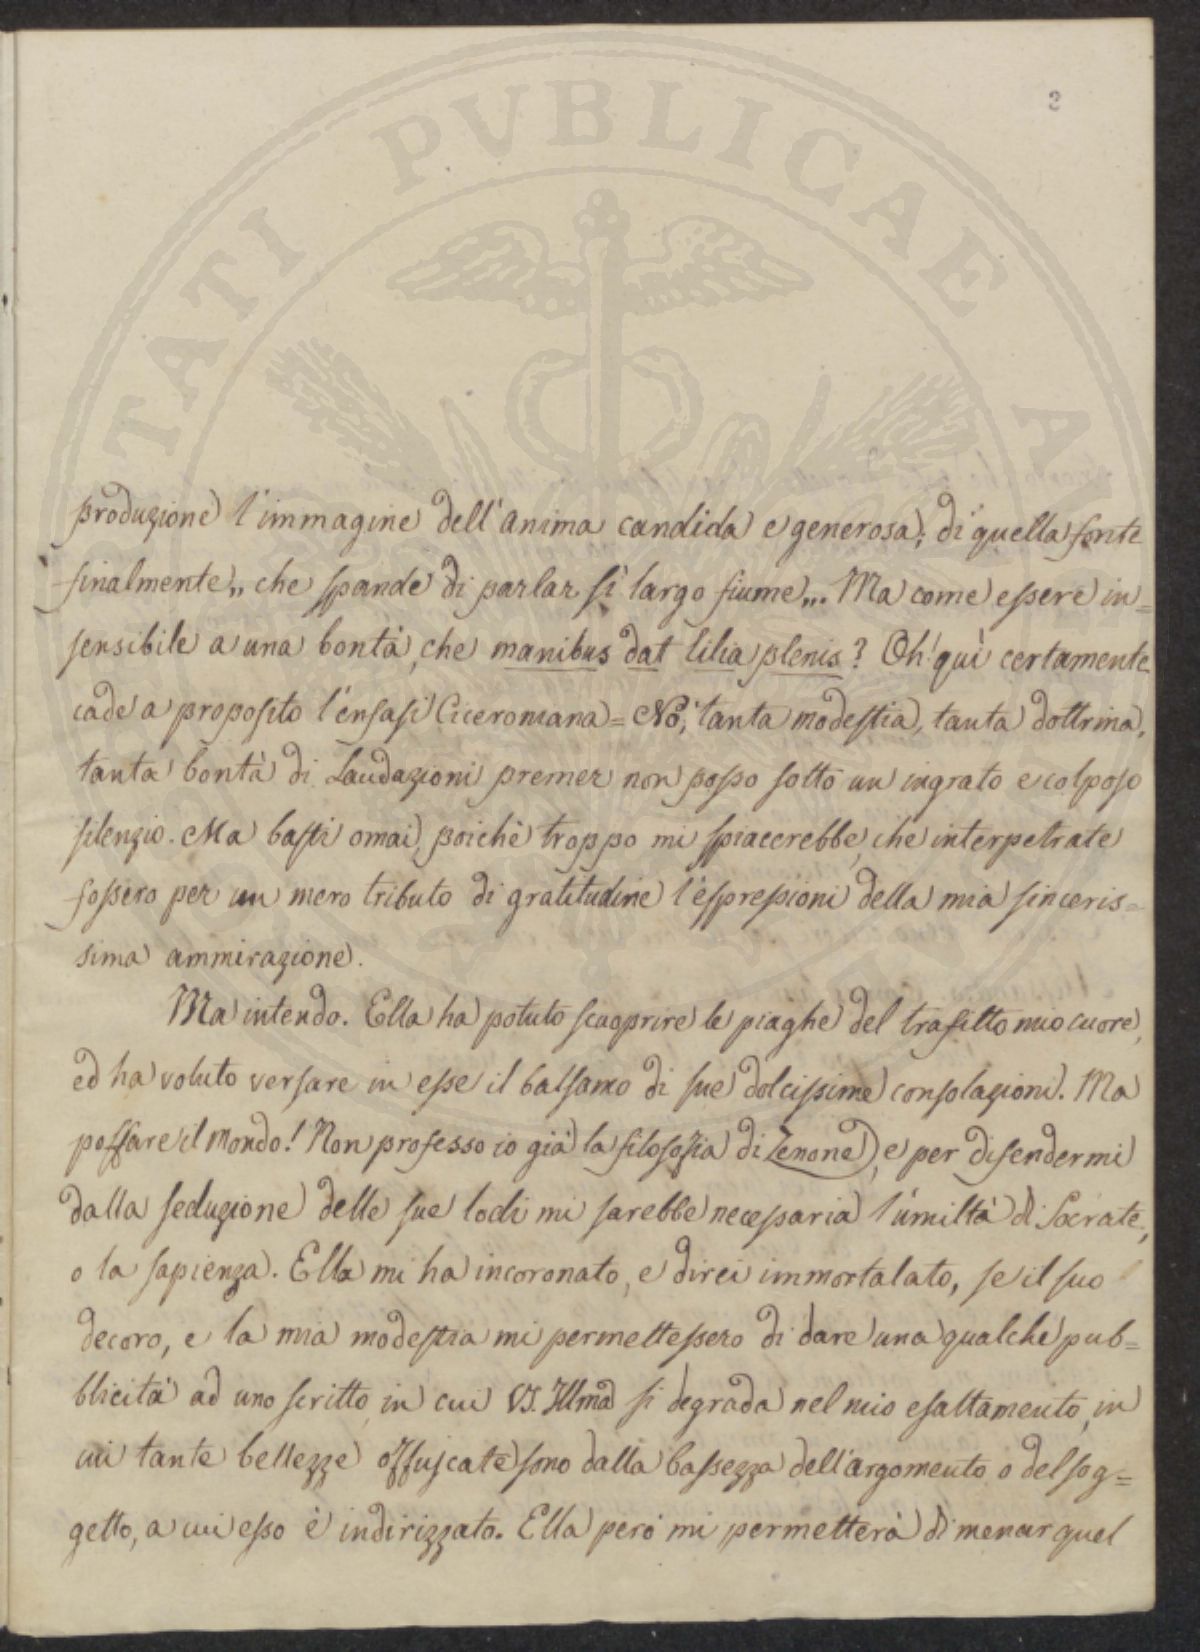 TATI PVBLICAE A
2
produzione l'immagine dell'anima candida e generosa; di quella fonte
finalmente„ che spande di parlar sì largo fiume„. Ma come essere in=
sensibile a una bontà, che manibus dat lilia plenis? Oh! quì certamente
cade a proposito l'enfasi Ciceroniana = No, tanta modestia, tanta dottrina,
tanta bontà di Laudazioni premer non posso sotto un ingrato e colposo
silenzio. Ma basti omai, poichè troppo mi spiacerebbe, che interpetrate
fossero per un mero tributo di gratitudine l'espressioni della mia sinceris=
sima ammirazione.
Ma intendo. Ella ha potuto scuoprire le piaghe del trafitto mio cuore,
ed ha voluto versare in esse il balsamo di sue dolcissime consolazioni. Ma
poffare il Mondo! Non professo io già la filosofia di Zenone, e per difendermi
dalla seduzione delle sue lodi mi sarebbe necessaria l'umiltà di Socrate,
o la sapienza. Ella mi ha incoronato, e direi immortalato, se il suo
decoro, e la mia modestia mi permettessero di dare una qualche pub=
blicità ad uno scritto, in cui VS. Illma si degrada nel mio esaltamento, in
cui tante bellezze offuscate sono dalla bassezza dell'argomento o del sog=
getto, a cui esso è indirizzato. Ella però mi permetterà di menar quel